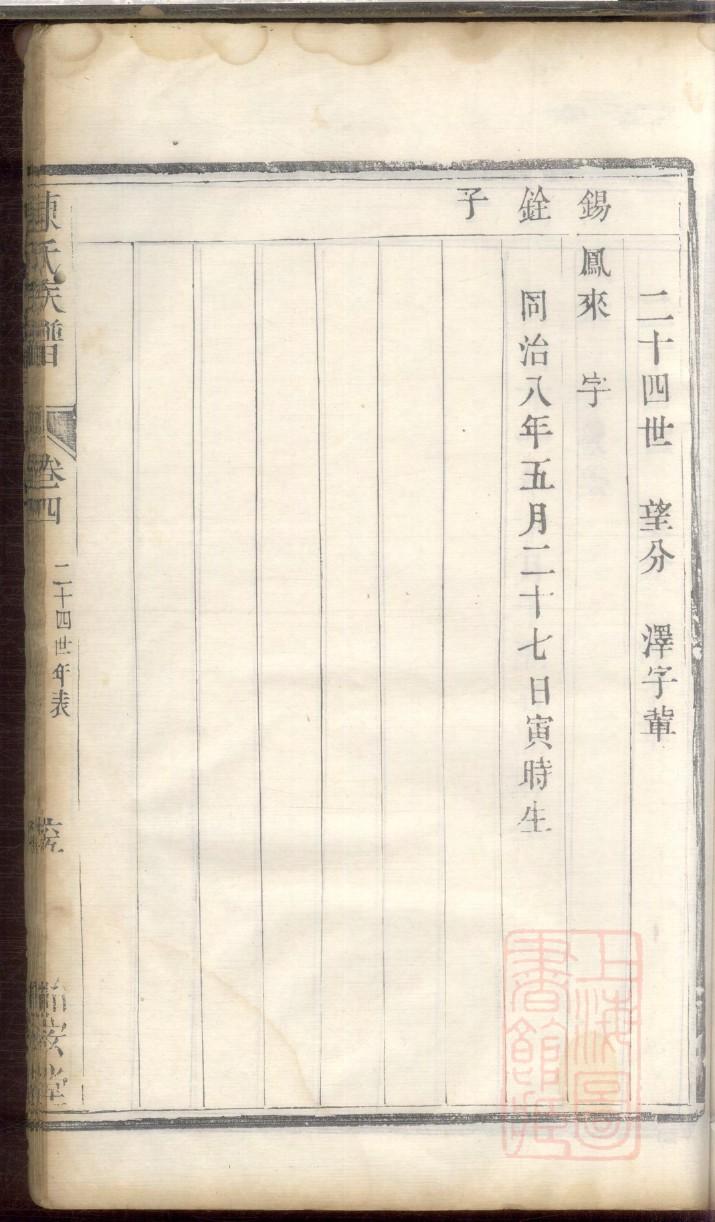 二十四世　望分　澤字輩
錫銓子
鳳來　字
同治八年五月二十七日寅時生
陳氏族譜
卷四
二十四世年表
上海圖書館藏